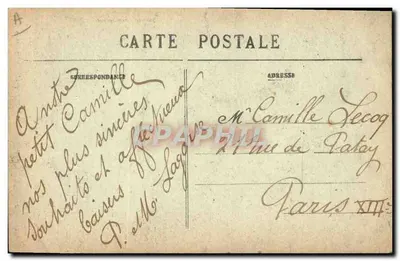 A
CARTE POSTALE
CORRESPONDANCE
ADRESSE
A notre
petit Camille
nos plus sincères
souhaits et affectueux
baisers
P. M.
Mr Camille Lecoq
rue de Patay
Paris XIIIe